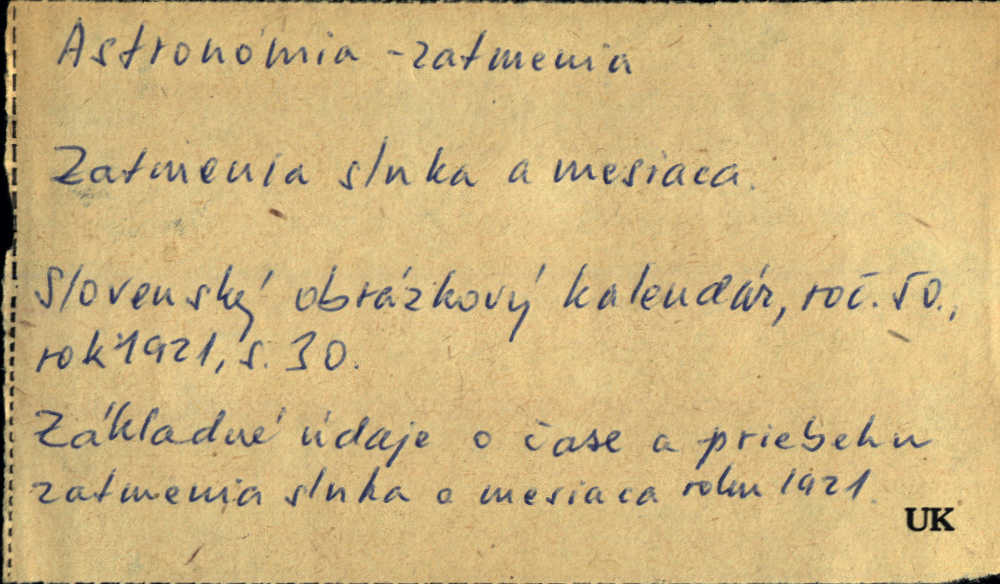 Astronómia - zatmenia
Zatmenia slnka a mesiaca.
Slovenský obrázkový kalendár, roč. 50.,
rok 1921, s. 30.
Základné údaje o čase a priebehu
zatmenia slnka a mesiaca roku 1921.
UK